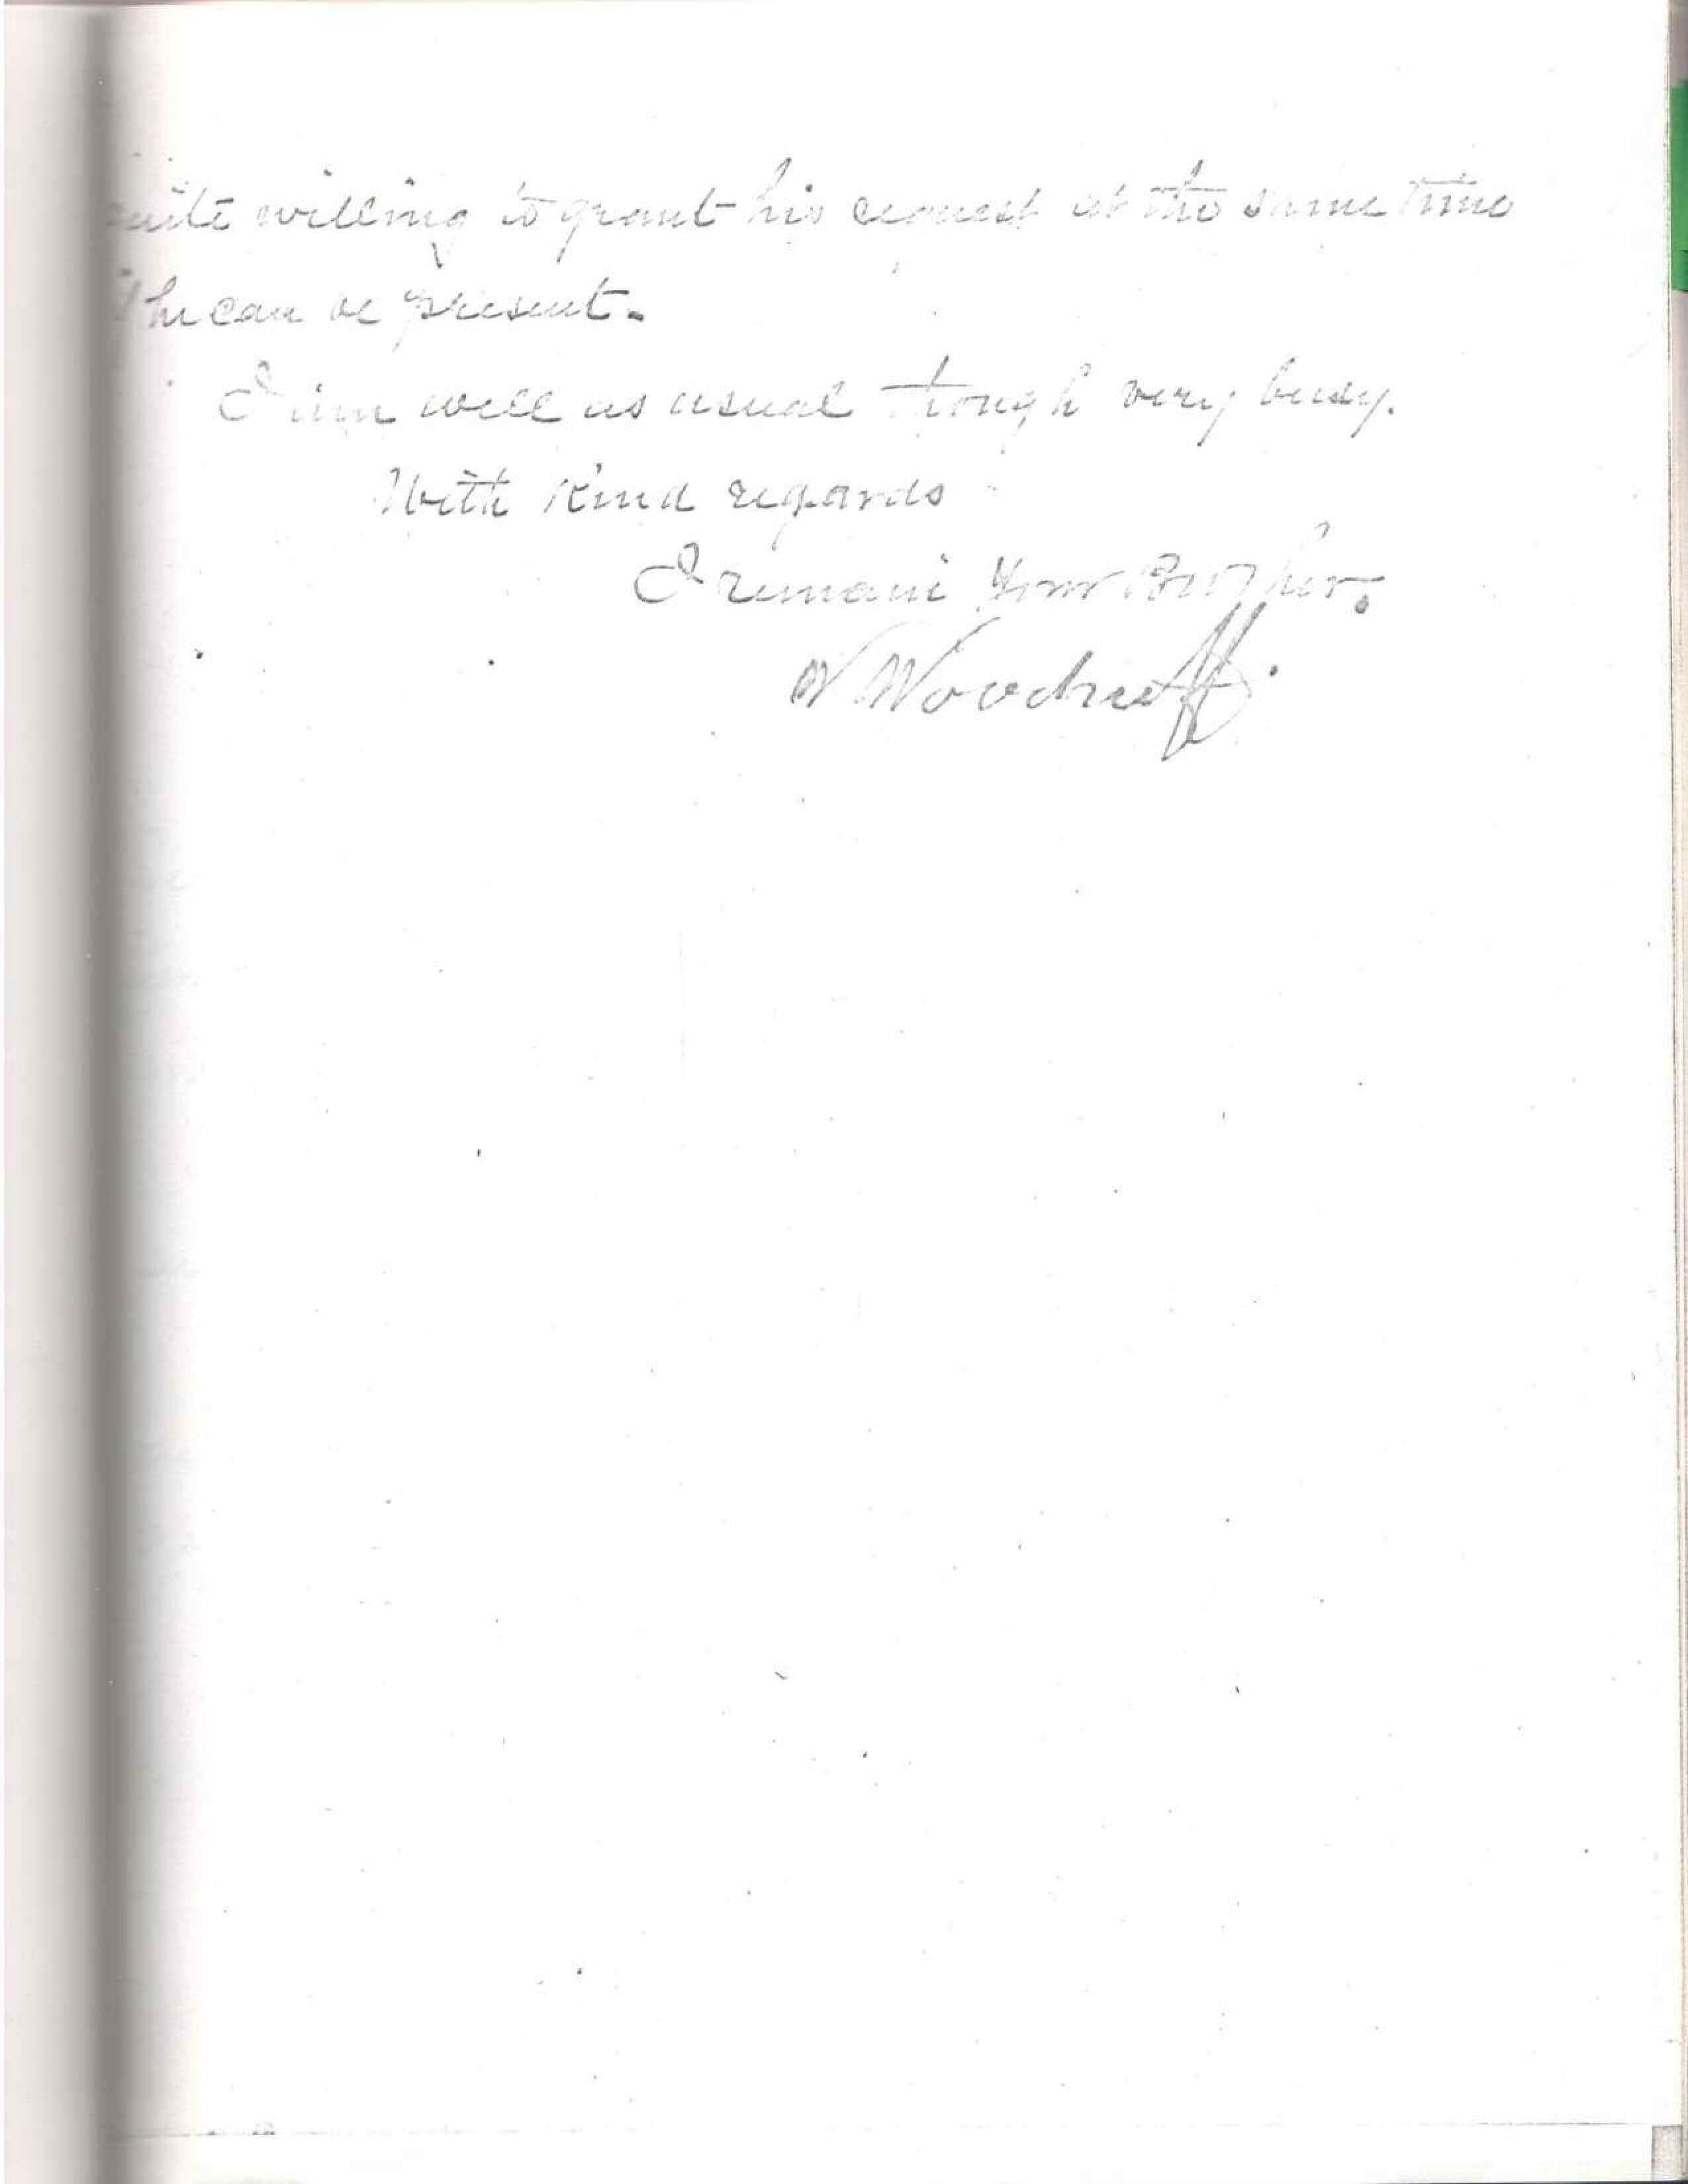 quite willing to grant his request at the same time
if he can be present.
I am well as usual though very busy.
With Kind regards
I remain Your Brother.
W Woodruff